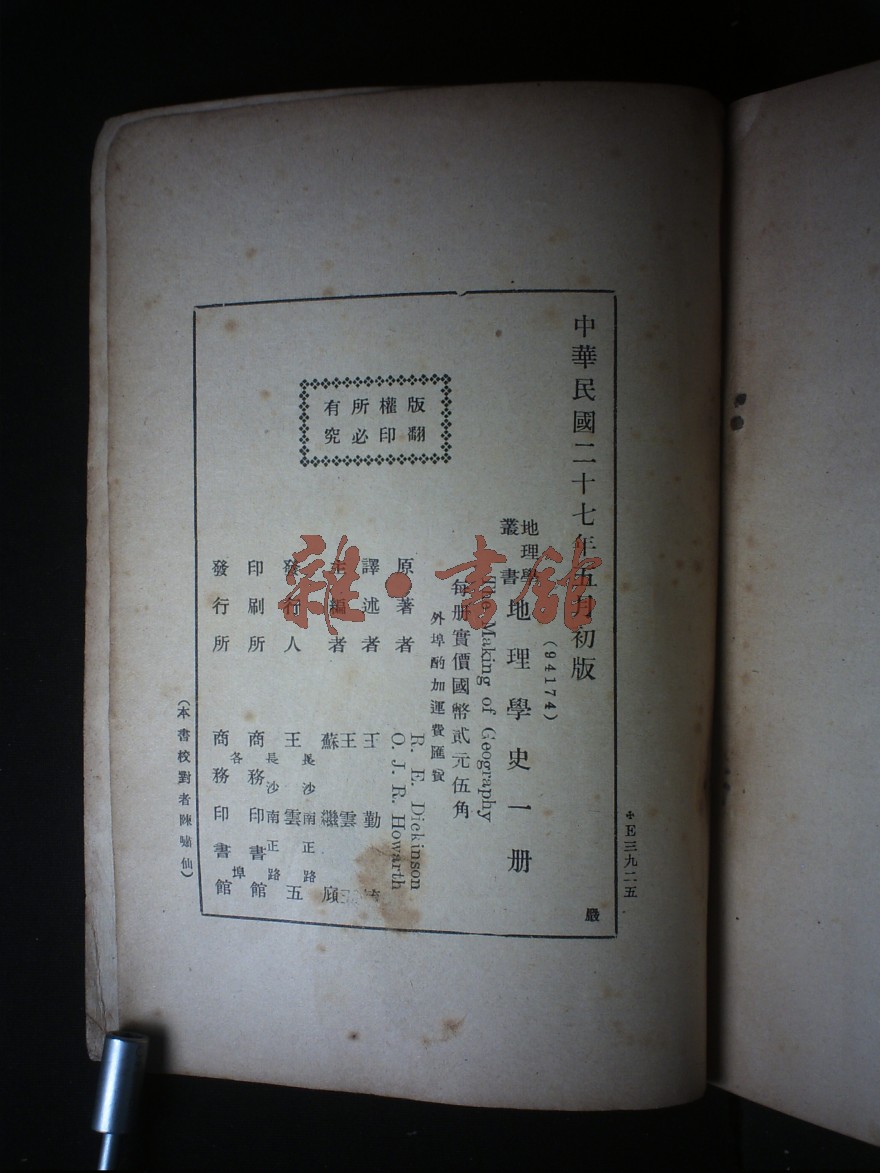 ✢E三九二五
中華民國二十七年五月初版
嚴
(94174)
地理學
叢書
地理學史一册
The Making of Geography
每册實價國幣貳元伍角
外埠酌加運費匯費
版權所有
翻印必究
原著者 R. E. Dickinson
O. J. R. Howarth
譯述者 王勤
主編者 王雲五
蘇繼廎
發行人 王雲五
長沙南正路
印刷所 商務印書館
長沙南正路
發行所 商務印書館
各埠
(本書校對者陳嘯仙)
雜·書館